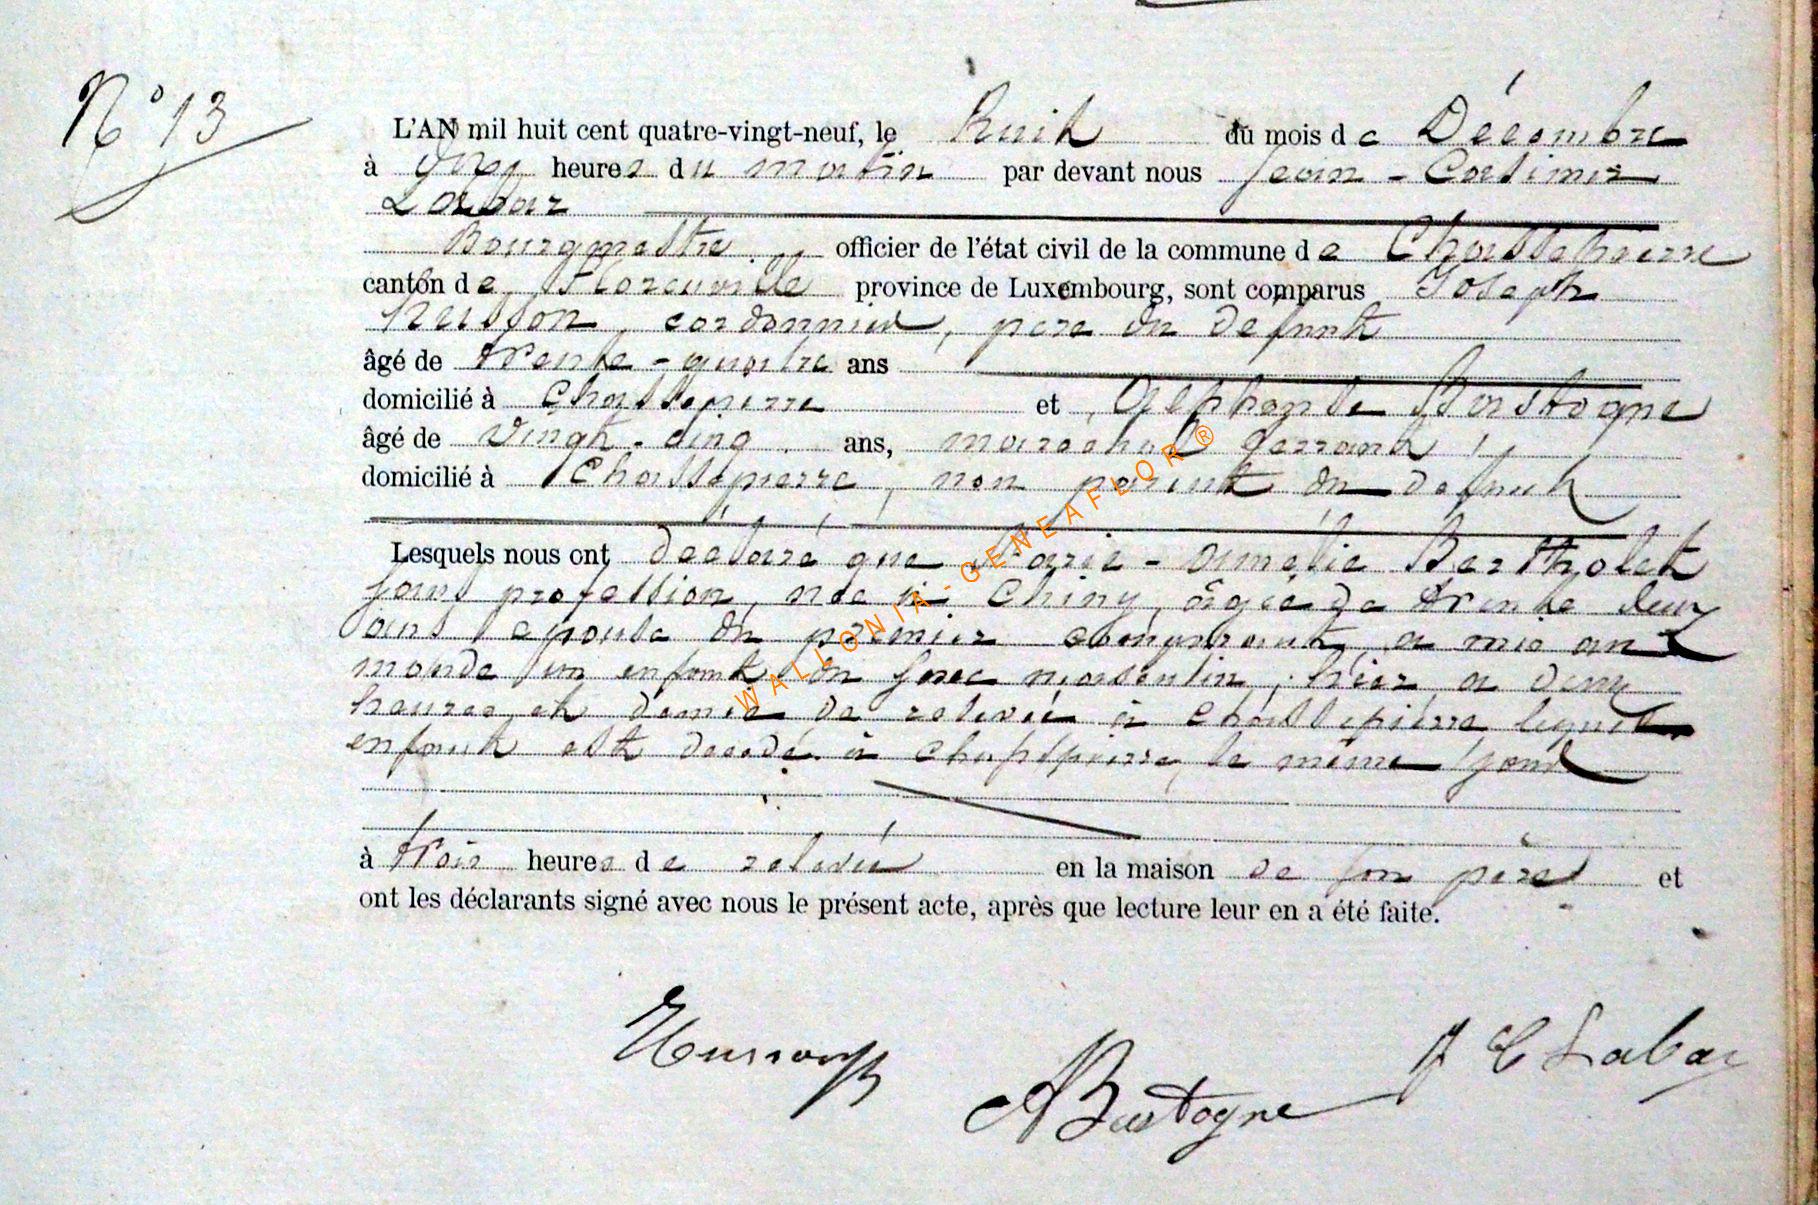 N° 13
L'AN mil huit cent quatre-vingt-neuf, le huit du mois de Décembre
à onze heures du matin par devant nous Jean-Casimir
Labar
Bourgmestre officier de l'état civil de la commune de Chassepierre
canton de Florenville province de Luxembourg, sont comparus Joseph
Husson, cordonnier, père du defunt
âgé de trente-quatre ans
domicilié à Chassepierre et Alphonse Bastogne
âgé de vingt-cinq ans, maréchal ferrant
domicilié à Chassepierre, non parent du defunt
Lesquels nous ont déclaré que Marie-Amélie Bertholet
sans profession, née à Chiny, âgée de trente deux
ans épouse du premier comparant, a mis au
monde un enfant du sexe masculin, hier, a deux
heures et demie de relevée à Chassepierre lequel
enfant est decedé à Chassepierre, le même jour
à trois heures de relevée en la maison de son père et
ont les déclarants signé avec nous le présent acte, après que lecture leur en a été faite.
Husson
ABastogne
J C Labar
WALLONIA-GENEAFLOR®